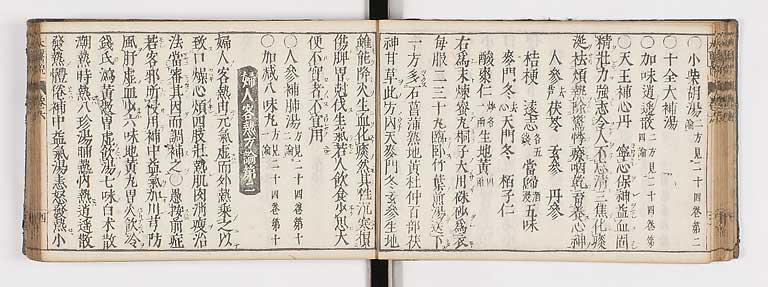 ○小柴胡湯二方見二十四卷第二
○十全大補湯
○加味逍遥散二方見二十四卷第四論
○天王補心丹 寧心保神益血固
精壯力強志令人不忘清三焦化痰
涎祛煩熱除驚悸療咽乾育養心神
人參去蘆 茯苓 玄參 丹參
桔梗 遠志各五錢 當歸酒浸 五味
麥門冬去心 天門冬 栢子仁
酸棗仁炒各一兩 生地黃四兩
右爲末煉蜜丸桐子大用硃砂爲衣
每服二三十丸臨卧竹葉煎湯送下
一方多石菖蒲熟地黃杜仲百部茯
神甘草此方内天麥門冬玄參生地
雖能降火生血化痰然其性沉寒損
傷脾胃尅伐生氣若人飲食少思大
便不實者不宜用
○人參補肺湯方見二十四卷第十二論
○加減八味丸方見二十四卷第十論
婦人客熱方論第二
婦人客熱因元氣虛而外熱乘之以
致口燥心煩四肢壯熱肌肉消瘦治
法當審其因而調補之○愚按前症
若客邪所侵用補中益氣加川芎防
風肝虛血少六味地黃丸胃火飲冷
錢氏瀉黃散胃虛飲湯七味白朮散
潮熱時熱八珍湯晡熱内熱逍遥散
發熱體倦補中益氣湯恚怒發熱小